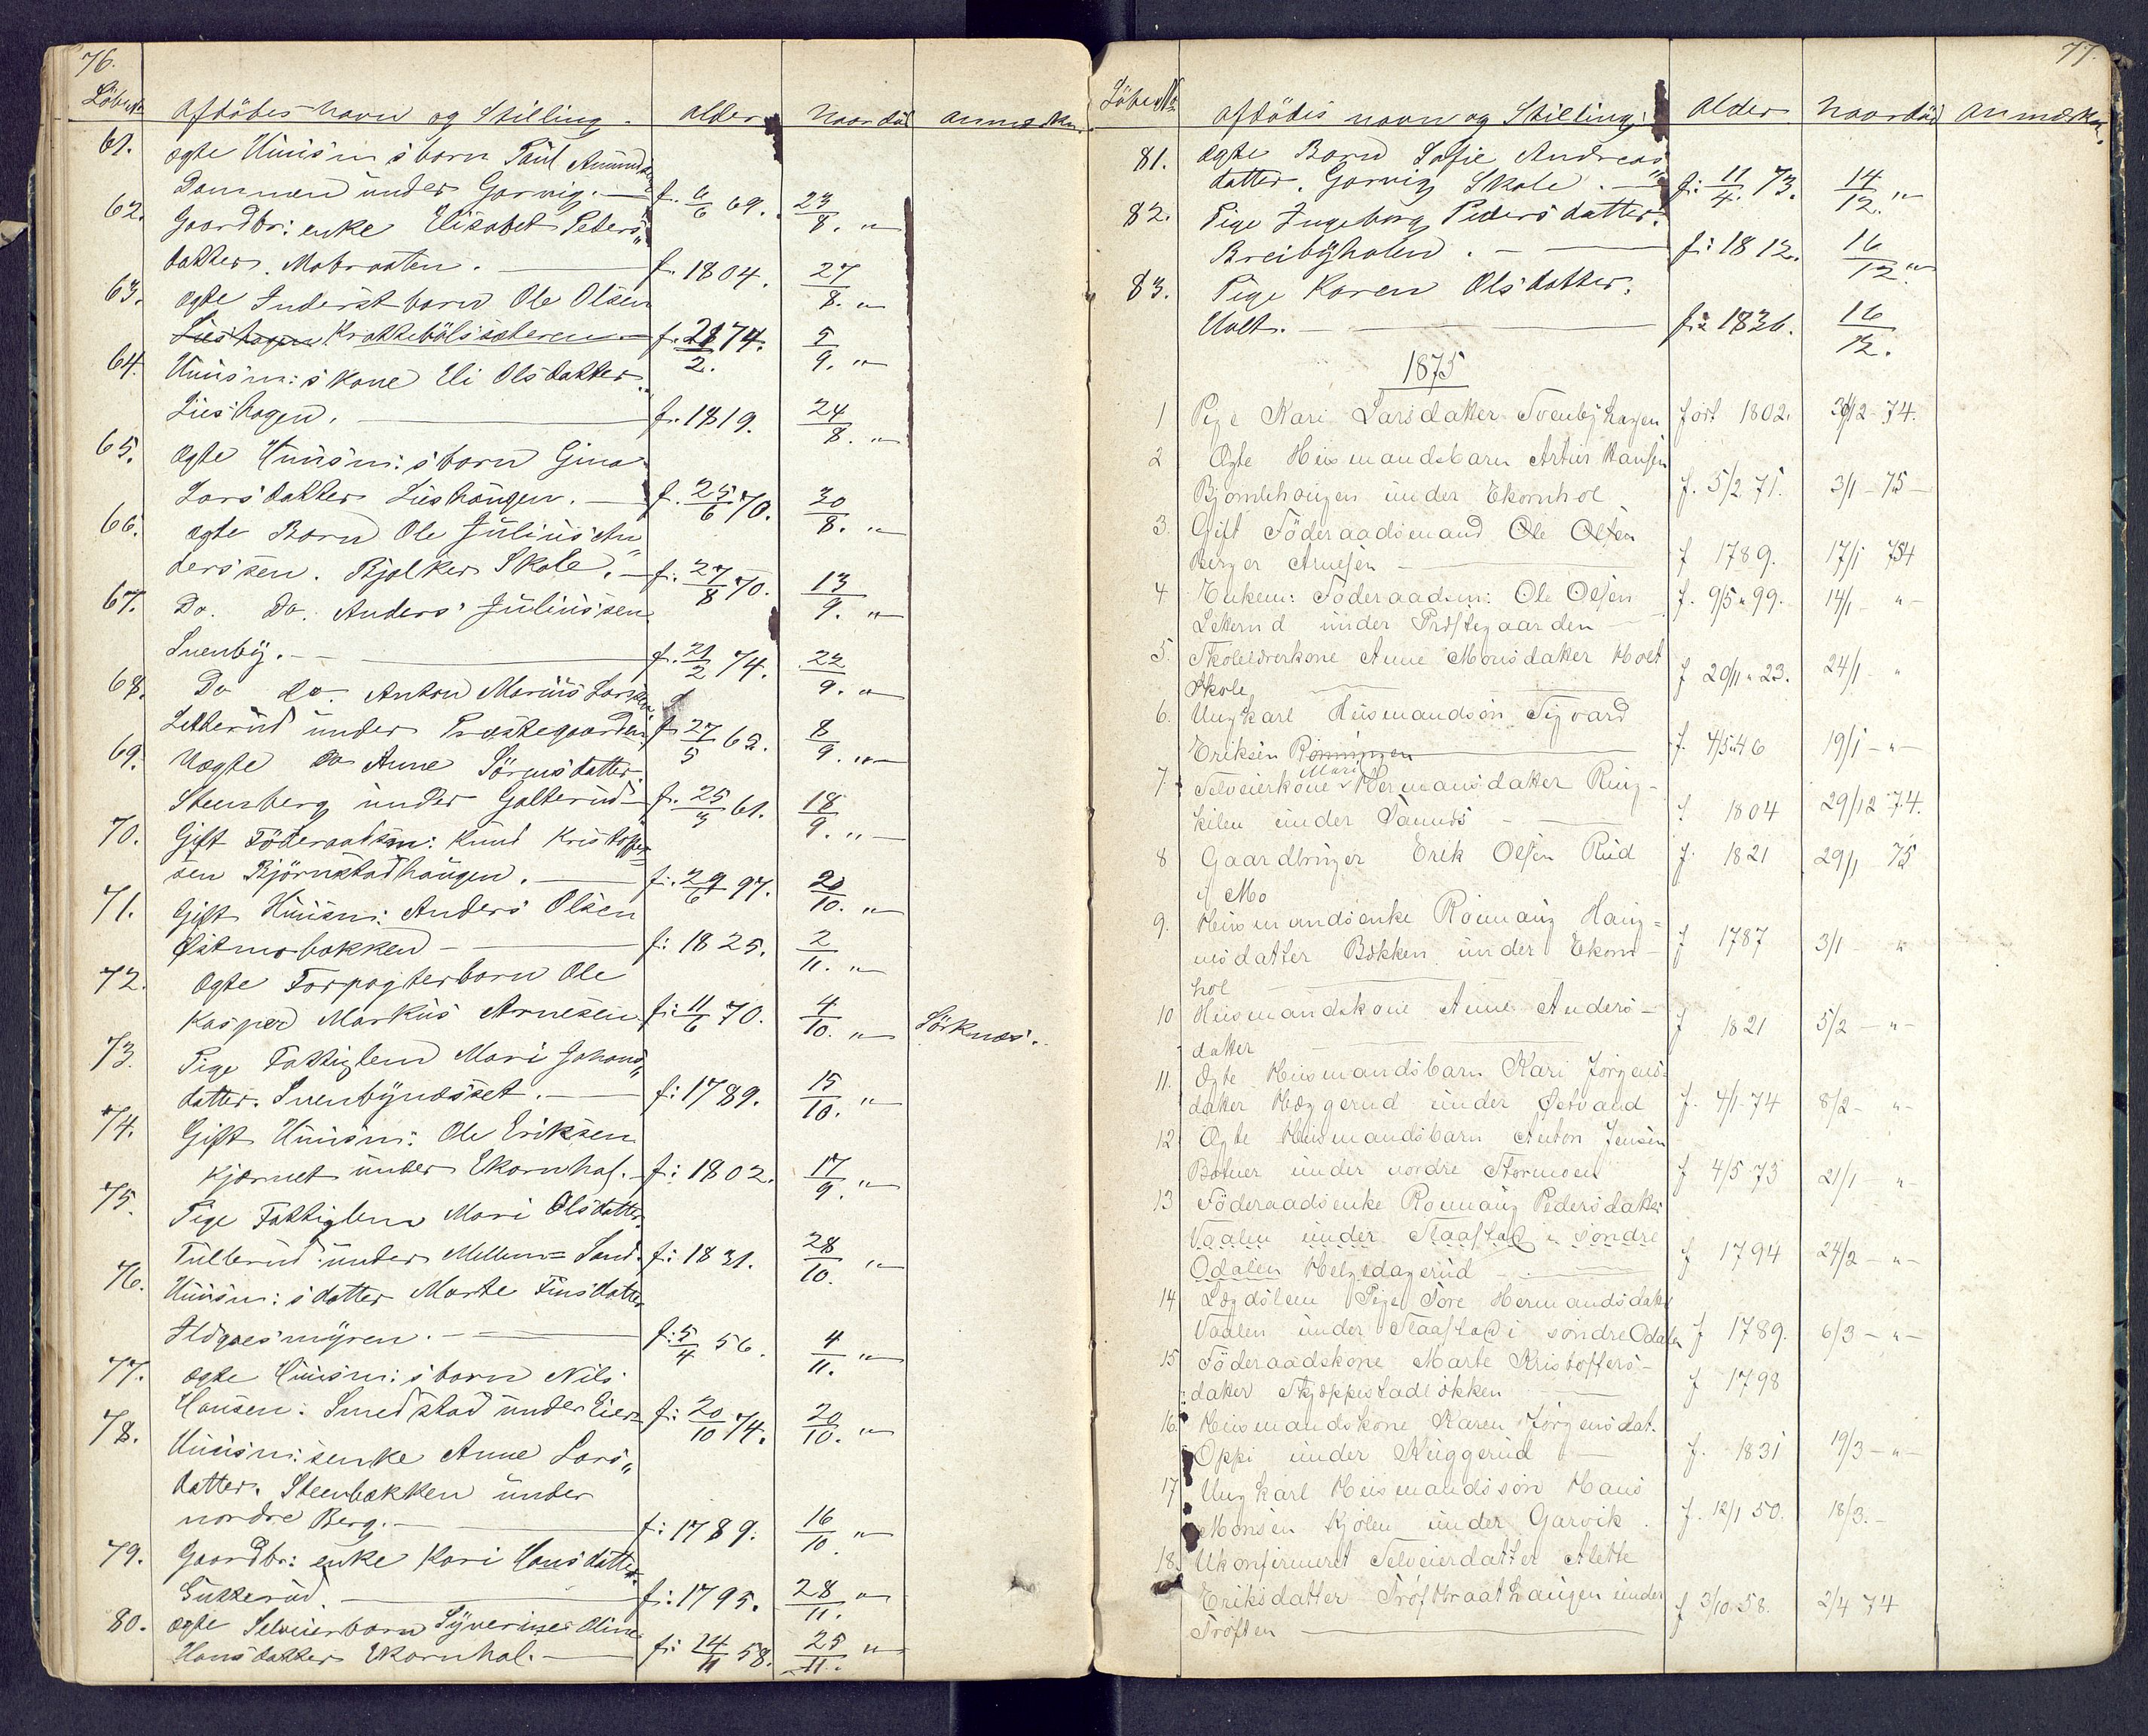 76.
Löbe No Afdödes navn og Stilling. Alder Naar död Anmærkn.
61. Ægte Huusm:s barn Paul Amunds
Dammen under Garvig. — f. 6/6 69. 23/8. "—
62. Gaardbr: enke Elisabet Peders"
datter. Mobraaten. — f. 1804. 27/8. "
63. Ægte Inderst barn Ole Olsen
Krakkebölsæteren — f. 21/2. 74. 5/9. "—
64. Huusm:s kone Eli Olsdatter
Lieshagen. — f. 1819. 24/8. "—
65. Ægte Huusm:s barn Gina
Larsdatter Lieshaugen. — f. 25/6 70. 30/8. "
66. Ægte Barn Ole Julius An"
derssen. Bjølker Skole. — f. 27/8 70. 13/9. "—
67. Do. Do. Anders Juliussen
Svenby. — f. 21/2 74. 22/9. "—
68. Do do Anton Marius Larsen
Letterud under Præstegaarden f. 27/5 62. 8/9. "—
69. Uægte do Anne Sörensdatter
Steensberg under Galterud — f. 25/3 61. 18/9. "—
70. Gift Föderaadsm: Knud Kristoffer
sen Björnstadhaugen. — f. 29/6 97. 20/10. "
71. Gift Huusm: Anders Olsen
Østmobakken — f: 1825. 2/11. "—
72. Ægte Forpagterbarn Ole
Kasper Markus Arnesen f: 11/6 70. 4/10. "— Sörknæs.
73. Pige Fattiglem Mari Johans"
datter. Svenbynæsset. — f: 1789. 15/10. "
74. Gift Huusm: Ole Eriksen
Kjernet under Ekornhol. — f: 1802. 17/9. "
75. Pige Fattiglem Mari Olsdatter
Tullerud under Mellem= Sand. f: 1831. 28/10. "
76. Huusm:s datter Marte Finsdatter
Ildgaesmyren. — f: 5/4 56. 4/11. "—
77. Ægte Huusm:s barn Nils
Hansen: Smedstad under Lier f: 20/10 74. 20/10. "
78. Huusm:senke Anne Lars"
datter. Steenbakken under
nordre Berg. — f: 1789. 16/10. "
79. Gaardbr: enke Kari Hansdatter
Gukkerud. — f: 1795. 28/11. "
80. Ægte Selveierbarn Syverine Oline
Hansdatter Ekornhol. — f: 14/11 58. 25/11. "
77.
Löbe No Afdödes navn og Stilling: Alder Naar död Anmærkn.
81. Ægte Barn Sofie Andreas"
datter. Garvig Skole. — f: 11/4. 73. 14/12. "
82. Pige Ingeborg Pedersdatter.
Breibyholen. — f: 1812. 16/12 "
83. Pige Karen Olsdatter.
Holt. — f: 1826. 16/12.
1875
1 Pige Kari Larsdatter Svenbyhagen födt 1802. 30/12-74.
2 Ægte Husmandsbarn Artur Hansen
Bjornlihaugen under Ekornhol f. 5/2 71. 3/1 - 75 -
3. Gift Föderaadsmand Ole Olsen
Berger Arnesen — f 1789. 17/1 75
4 Enkem: Föderaadsm: Ole Olsen f. 9/5 " 99. 14/1 - "-
Letterud under Præstegaarden —
5. Skolelærerkone Anne Monsdatter Holt f 20/11 " 23. 24/1 - "
Skole
6. Ungkarl Husmandsøn Sigvard
Eriksen Rönningen f. 4/5 " 46 19/1 - "-
7. Selveierkone Mari Hermansdatter Ring-
kilen under Sanuds — f 1804 29/12 74.
8 Gaardbruger Erik Olsen Rud f. 1821 29/1 75
i Mo
9. Husmandsenke Rönnaug Haug=
nsdatter Bækken under Ekorn- f 1787 3/1 - "
hol —
10 Husmandskone Anne Anders- f 1821 5/2 - "-
datter —
11. Ægte Husmandsbarn Kari Jörgens-
datter Hæggerud under Østvand f. 4/1-74 8/2 - "-
12 Ægte Husmandsbarn Anton Jensen
Botner under nordre Stormoen f 4/5 73 21/1 - "-
13 Föderaadsenke Rönnaug Pedersdatter
Vaalen under Slaastad i söndre
Odalen Helgedagerud — f 1794 24/2 - "-
14 Lægdslem Pige Tore Hermandsdatter
Vaalen under Slaastad i söndre Odalen f 1789. 6/3 - "-
15 Föderaadskone Marte Kristoffers-
datter Skjæppestadlökken — f 1798
16. Husmandskone Karen Jörgensdat.
Oppi under Kuggerud — f. 1831 19/3 - "-
17 Ungkarl Husmandssön Hans
Monsen Kjölen under Garvik. f. 12/1 50. 18/3. -
18. Ukonfirmeret Selveierdatter Alette
Eriksdatter Tröftbraathaugen under f 3/10 58. 2/4 74
Tröften —